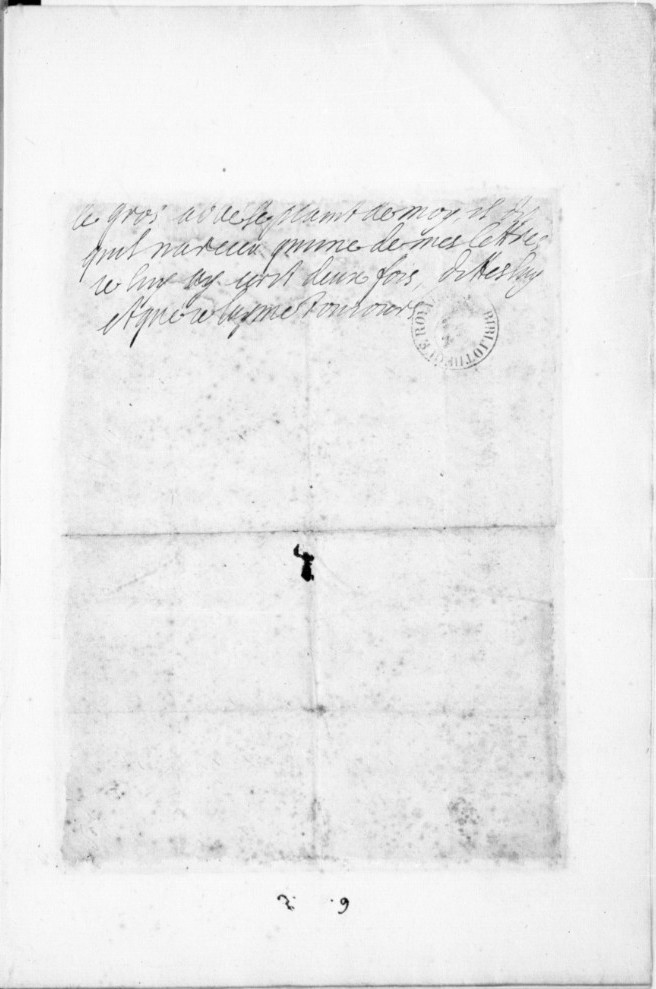 le gros abbé se plaint de moy et dit
quil na receu qune de mes lettres
ie luy ay ecrit deux fois, dittes luy
et que ie layme tousiours
BIBLIOTHEQUE ROY